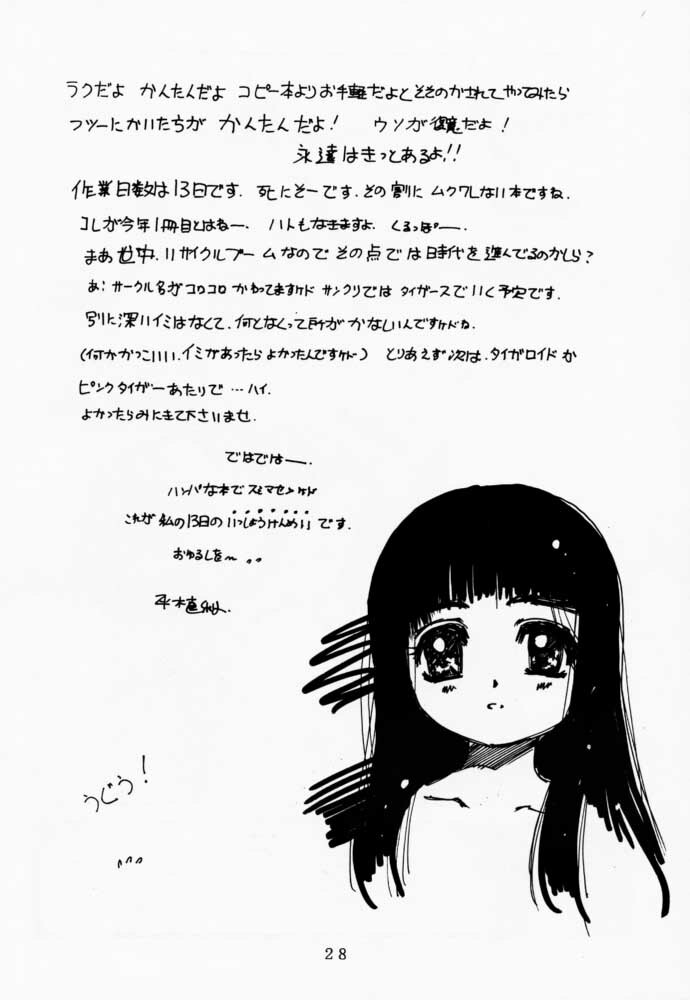 ラクだよ かんたんだよ コピー本よりお手軽だよとそそのかされてやってみたら
フツーにかいたちが かんたんだよ! ウソが覚だよ!
永遠はきっとあるよ!!
作業日数は13日です. 死にそーです. その割に ムクワレない本ですね.
コレが今年1冊目とはねー. ハトもなきますよ. くるっぽー.
まあ世中. リサイクルブームなので その点では時代を進んでるのかしら?
あ: サークル名がコロコロ かわってますケド サンクリでは タイガースでいく予定です.
別に深いイミはなくて. 何となくって所が かなしいんですけどね.
(何かかっこいい. イミがあったら よかったんですケド) とりあえず次は. タイガロイド か
ピンクタイガーあたりで … ハイ.
よかったらみにきて下さいませ.
ではではー.
ハンパな本でスミマセンケド
これが 私の13日の いっしょうけんめい です.
おゆるしを〜 ..
平木直
うぐぅ!
28